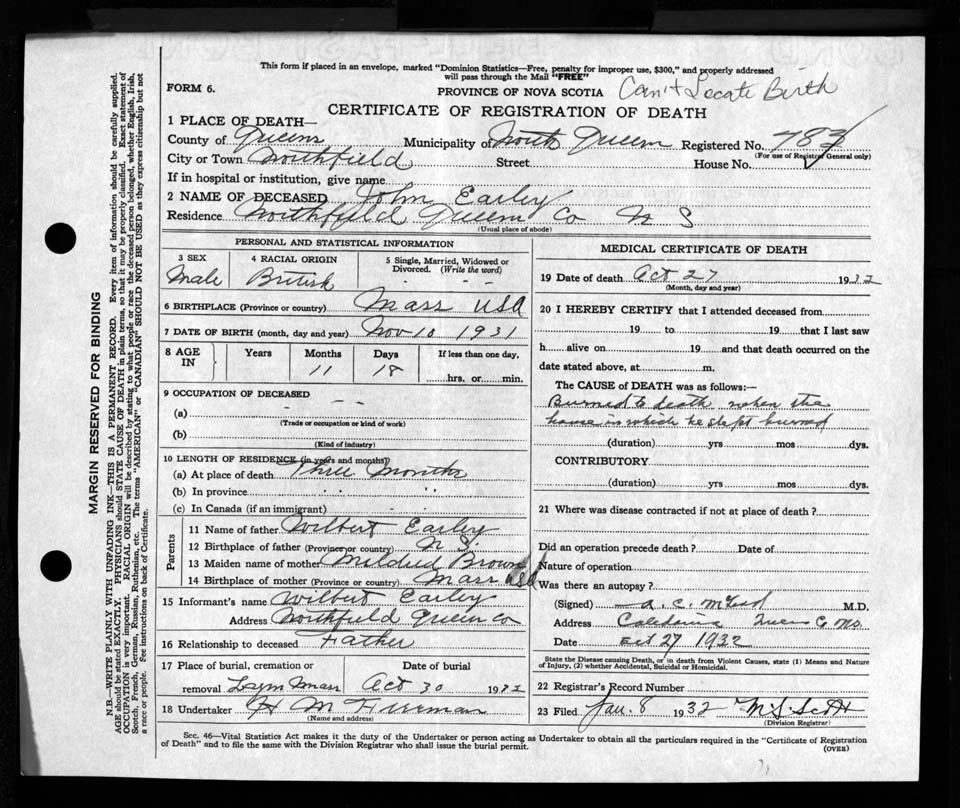 This form if placed in an envelope, marked "Dominion Statistics—Free, penalty for improper use, $300," and properly addressed
will pass through the Mail "FREE"
FORM 6.
PROVINCE OF NOVA SCOTIA Can't Locate Birth
CERTIFICATE OF REGISTRATION OF DEATH
1 PLACE OF DEATH—
County of Queens Municipality of North Queens Registered No. 783
City or Town Northfield Street House No. (For use of Registrar General only)
If in hospital or institution, give name
2 NAME OF DECEASED John Earley
Residence Northfield Queens Co N S
(Usual place of abode)
PERSONAL AND STATISTICAL INFORMATION
3 SEX 4 RACIAL ORIGIN 5 Single, Married, Widowed or Divorced. (Write the word)
Male British - - -
6 BIRTHPLACE (Province or country) Mass USA
7 DATE OF BIRTH (month, day and year) Nov 10 1931
8 AGE IN Years Months Days If less than one day.
11 18 hrs. or min.
9 OCCUPATION OF DECEASED
(a)
(Trade or occupation or kind of work)
(b)
(Kind of industry)
10 LENGTH OF RESIDENCE (in years and months)
(a) At place of death Three Months
(b) In province " "
(c) In Canada (if an immigrant)
Parents
11 Name of father Wilbert Earley
12 Birthplace of father (Province or country) N S
13 Maiden name of mother Mildred Brown
14 Birthplace of mother (Province or country) Mass USA
15 Informant's name Wilbert Earley
Address Northfield Queens Co
16 Relationship to deceased Father
17 Place of burial, cremation or Date of burial
removal Mass Oct 30 1932
18 Undertaker H M
(Name and address)
MEDICAL CERTIFICATE OF DEATH
19 Date of death Oct 27 1932
(Month, day and year)
20 I HEREBY CERTIFY that I attended deceased from
19 to 19 that I last saw
h alive on 19 and that death occurred on the
date stated above, at m.
The CAUSE of DEATH was as follows:—
Burned to death when the
house in which he slept burned
(duration) yrs mos dys.
CONTRIBUTORY
(duration) yrs mos dys.
21 Where was disease contracted if not at place of death?
Did an operation precede death? Date of
Nature of operation
Was there an autopsy?
(Signed) C. McLeod M.D.
Address Caledonia Queens Co
Date Oct 27 1932
State the Disease causing Death, or in death from Violent Causes, state (1) Means and Nature of Injury, (2) whether Accidental, Suicidal or Homicidal.
22 Registrar's Record Number
23 Filed Jan. 8 1932 Scott
(Division Registrar)
Sec. 46—Vital Statistics Act makes it the duty of the Undertaker or person acting as Undertaker to obtain all the particulars required in the "Certificate of Registration
of Death" and to file the same with the Division Registrar who shall issue the burial permit.
(OVER)
MARGIN RESERVED FOR BINDING
N.B.—WRITE PLAINLY WITH UNFADING INK—THIS IS A PERMANENT RECORD. Every item of information should be carefully supplied.
AGE should be stated EXACTLY. PHYSICIANS should STATE CAUSE OF DEATH in plain terms, so that it may be properly classified. Exact statement of
OCCUPATION is very important. RACIAL ORIGIN will be described by stating to what people or race the deceased person belonged, whether English, Irish,
Scotch, French, German, Russian, Ruthenian, etc. The terms "AMERICAN" or "CANADIAN" SHOULD NOT BE USED as they express citizenship but not
a race or people. Fee instructions on back of Certificate.